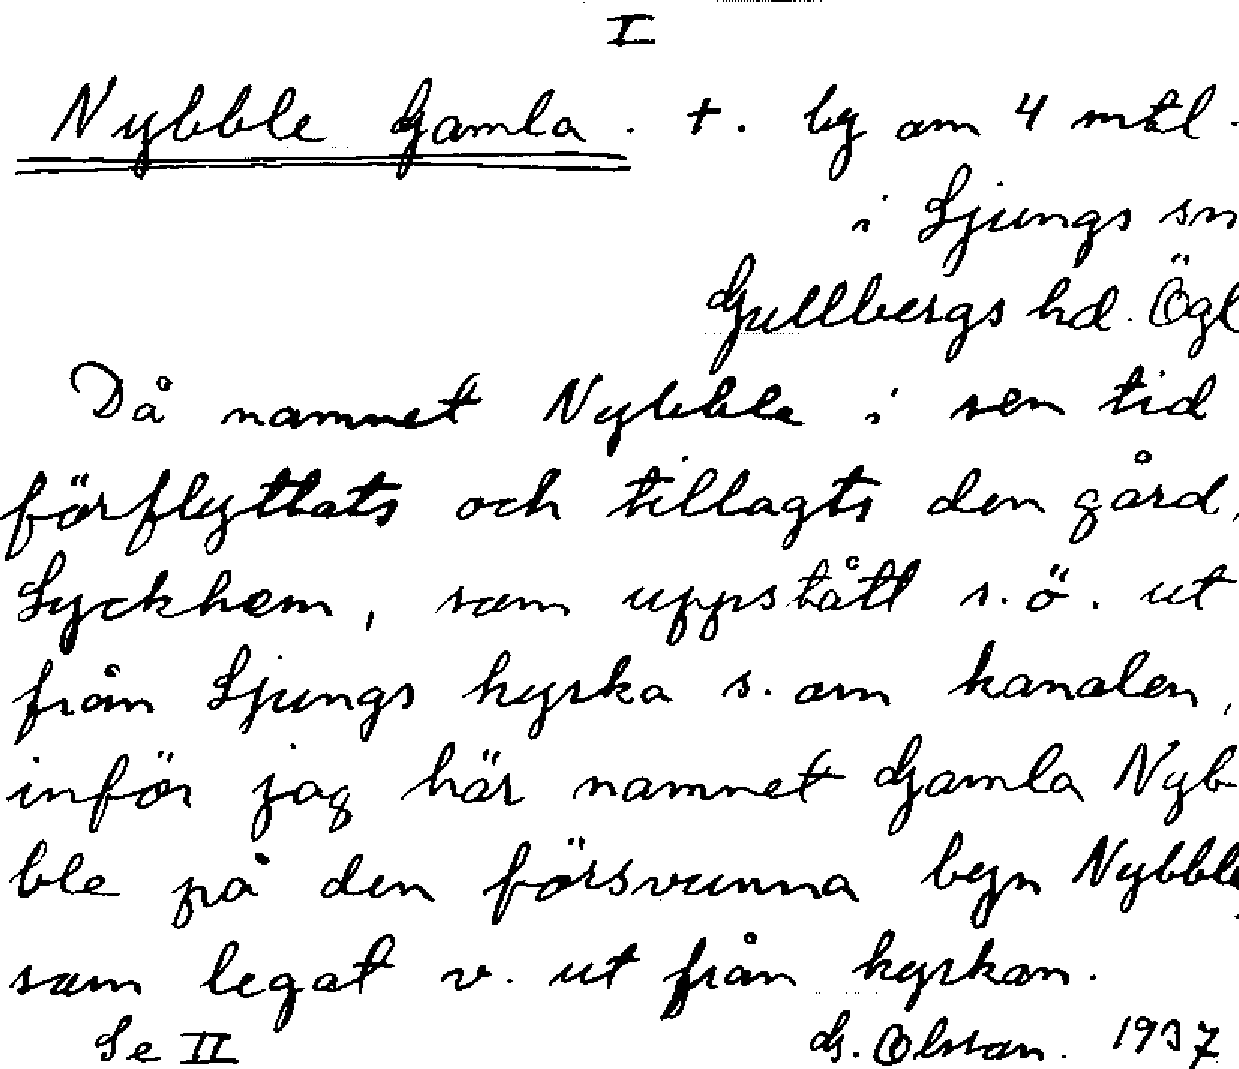 I
Nybble Gamla. +. by om 4 mtl.
i Ljungs sn
Gullbergs hd. Ögl
Då namnet Nybble i sen tid
förflyttats och tillagts den gård,
Lyckhem, som uppstått s.ö. ut
från Ljungs kyrka s. om kanalen,
inför jag här namnet Gamla Nyb-
ble på den försvunna byn Nybble,
som legat v. ut från kyrkan.
Se II G. Olsson. 1937